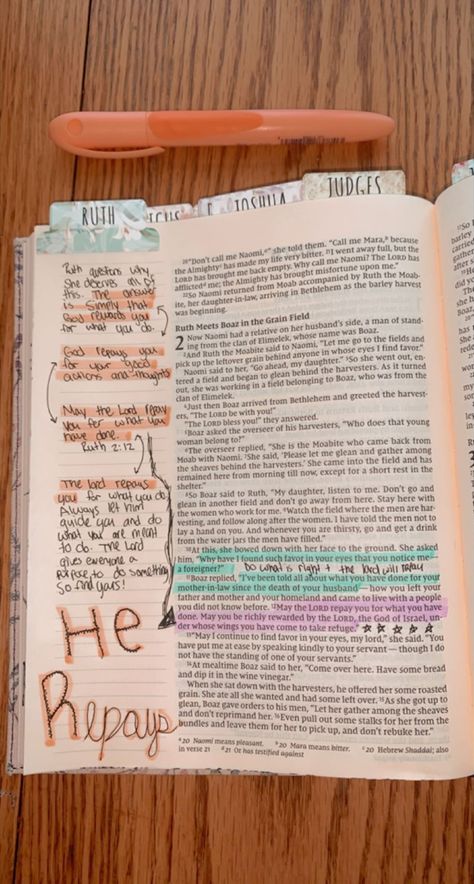 RUTH
JOSHUA
JUDGES
Ruth questions why
she deserves all of
this. The answer
is simply that
God rewards you
for what you do.
God repays you
for your good
actions and thoughts
May the Lord repay
you for what you
have done.
Ruth 2:12
The lord repays
you for what you do
Always let him
guide you and do
what you are meant
to do. The Lord
gives everyone a
purpose, to do something
So find yours!
He
Repays
20"Don't call me Naomi,a" she told them. "Call me Mara,b because
the Almightyc has made my life very bitter. 21I went away full, but the
LORD has brought me back empty. Why call me Naomi? The LORD has
afflictedd me; the Almighty has brought misfortune upon me."
22So Naomi returned from Moab accompanied by Ruth the Moab-
ite, her daughter-in-law, arriving in Bethlehem as the barley harvest
was beginning.
Ruth Meets Boaz in the Grain Field
2 Now Naomi had a relative on her husband's side, a man of stand-
ing from the clan of Elimelek, whose name was Boaz.
2And Ruth the Moabite said to Naomi, "Let me go to the fields and
pick up the leftover grain behind anyone in whose eyes I find favor."
Naomi said to her, "Go ahead, my daughter." 3So she went out, en-
tered a field and began to glean behind the harvesters. As it turned
out, she was working in a field belonging to Boaz, who was from the
clan of Elimelek.
4Just then Boaz arrived from Bethlehem and greeted the harvest-
ers, "The LORD be with you!"
"The LORD bless you!" they answered.
5Boaz asked the overseer of his harvesters, "Who does that young
woman belong to?"
6The overseer replied, "She is the Moabite who came back from
Moab with Naomi. 7She said, 'Please let me glean and gather among
the sheaves behind the harvesters.' She came into the field and has
remained here from morning till now, except for a short rest in the
shelter."
8So Boaz said to Ruth, "My daughter, listen to me. Don't go and
glean in another field and don't go away from here. Stay here with
the women who work for me. 9Watch the field where the men are har-
vesting, and follow along after the women. I have told the men not to
lay a hand on you. And whenever you are thirsty, go and get a drink
from the water jars the men have filled."
10At this, she bowed down with her face to the ground. She asked
him, "Why have I found such favor in your eyes that you notice me —
a foreigner?" Do what is right + the lord will repay
11Boaz replied, "I've been told all about what you have done for your
mother-in-law since the death of your husband — how you left your
father and mother and your homeland and came to live with a people
you did not know before. 12May the LORD repay you for what you have
done. May you be richly rewarded by the LORD, the God of Israel, un-
der whose wings you have come to take refuge."
13"May I continue to find favor in your eyes, my lord," she said. "You
have put me at ease by speaking kindly to your servant — though I do
not have the standing of one of your servants."
14At mealtime Boaz said to her, "Come over here. Have some bread
and dip it in the wine vinegar."
When she sat down with the harvesters, he offered her some roasted
grain. She ate all she wanted and had some left over. 15As she got up to
glean, Boaz gave orders to his men, "Let her gather among the sheaves
and don't reprimand her. 16Even pull out some stalks for her from the
bundles and leave them for her to pick up, and don't rebuke her."
a20 Naomi means pleasant. b20 Mara means bitter. c20 Hebrew Shaddai; also
in verse 21 d21 Or has testified against